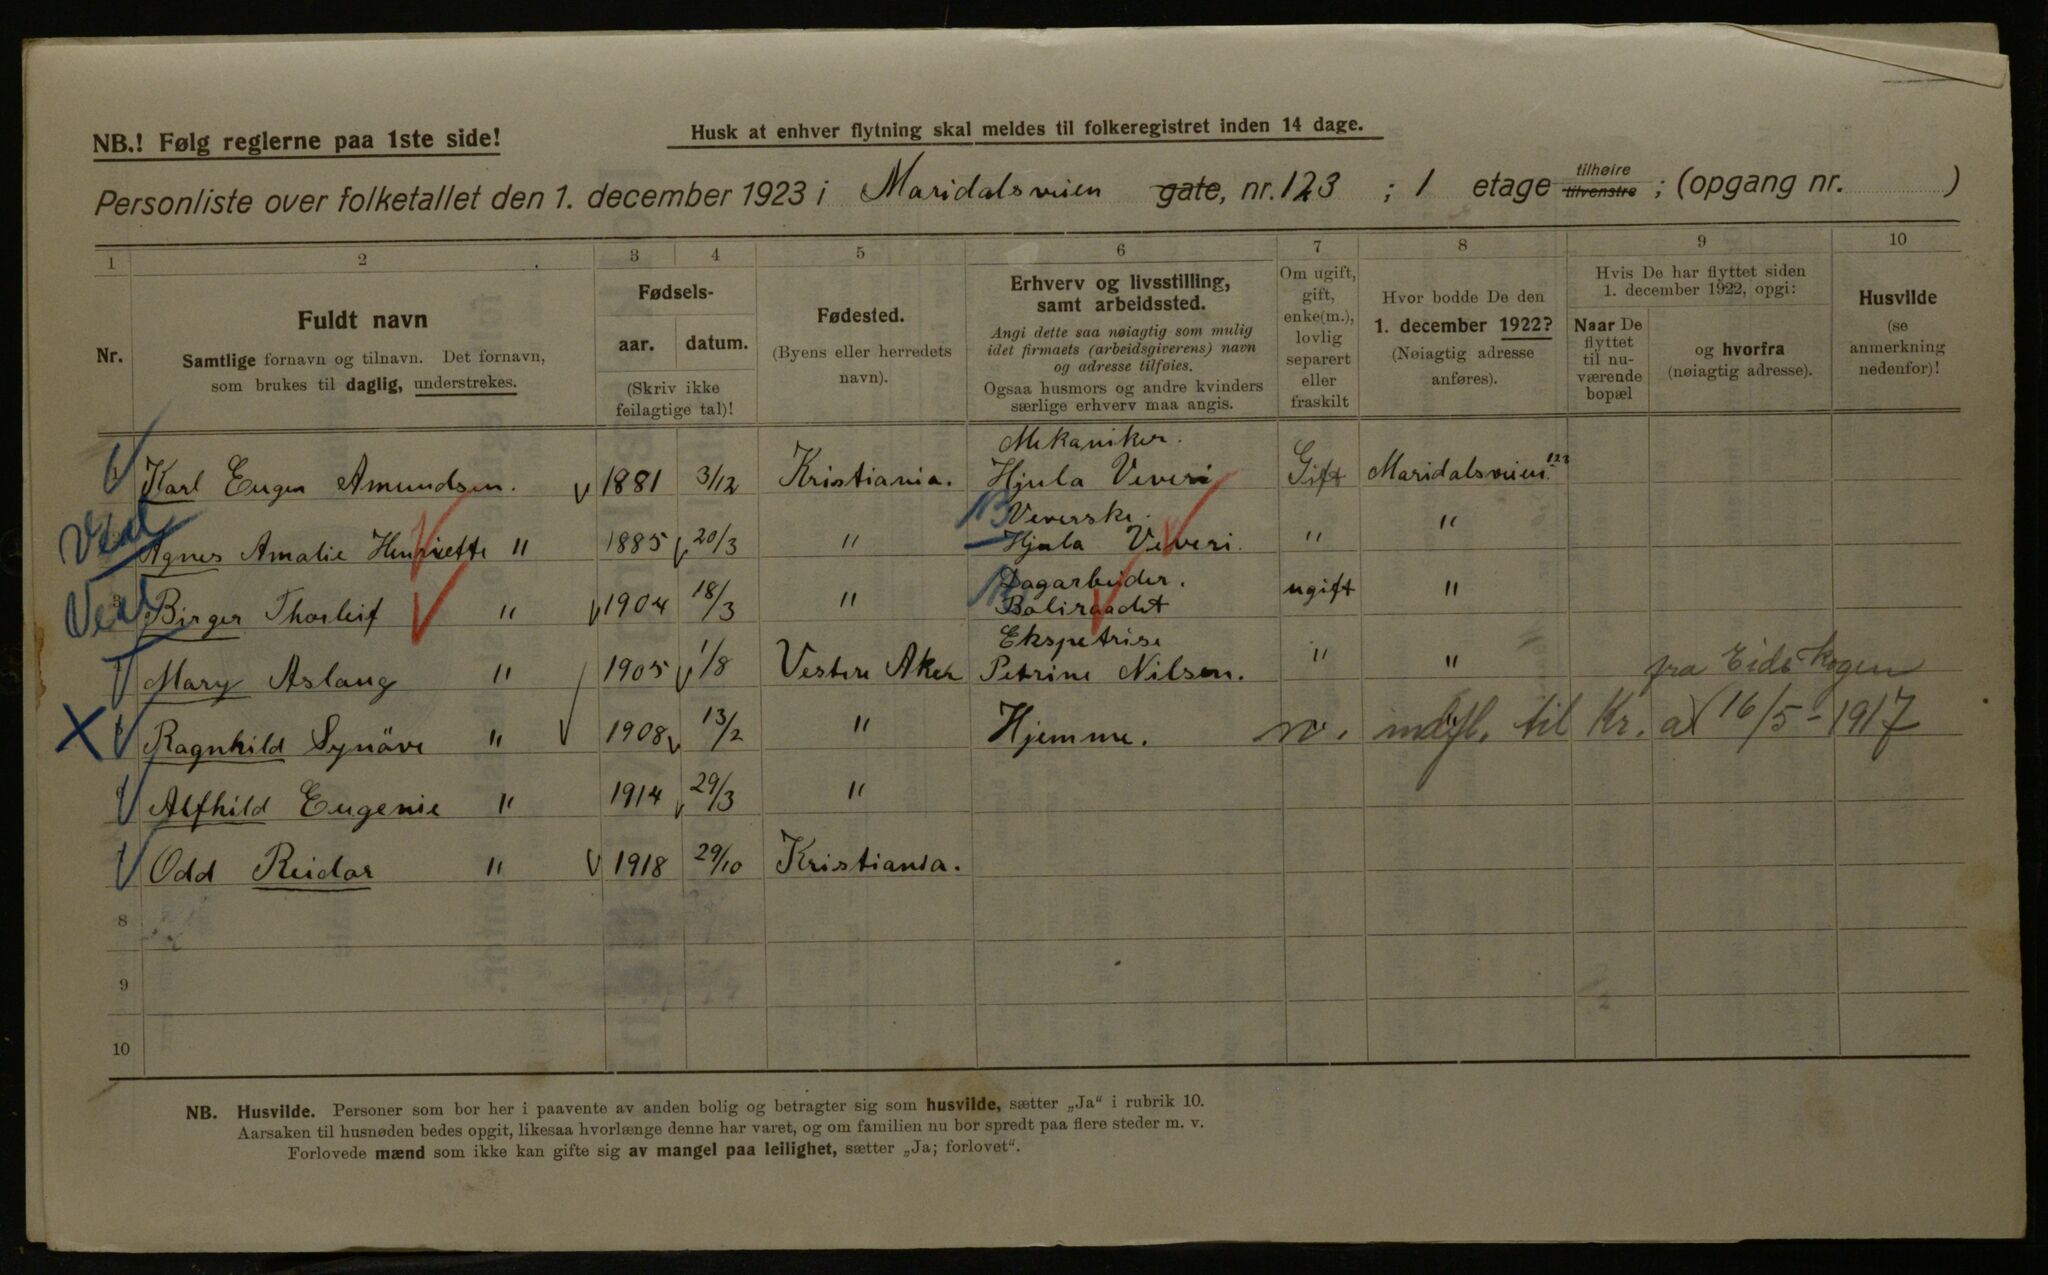 NB.! Følg reglerne paa 1ste side!
Husk at enhver flytning skal meldes til folkeregistret inden 14 dage.
Personliste over folketallet den 1. december 1923 i Maridalsveien gate, nr. 123 ; 1 etage tilhøire tilvenstre ; (opgang nr. )
1 2 3 4 5 6 7 8 9 10
Nr.
Fuldt navn
Samtlige fornavn og tilnavn. Det fornavn,
som brukes til daglig, understrekes.
Fødsels-
aar. datum.
(Skriv ikke
feilagtige tal)!
Fødested.
(Byens eller herredets
navn).
Erhverv og livsstilling,
samt arbeidssted.
Angi dette saa nøiagtig som mulig
idet firmaets (arbeidsgiverens) navn
og adresse tilføies.
Ogsaa husmors og andre kvinders
særlige erhverv maa angis.
Om ugift,
gift,
enke(m.),
lovlig
separert
eller
fraskilt
Hvor bodde De den
1. december 1922?
(Nøiagtig adresse
anføres).
Hvis De har flyttet siden
1. december 1922, opgi:
Naar De
flyttet
til nu-
værende
bopæl
og hvorfra
(nøiagtig adresse).
Husvilde
(se
anmerkning
nedenfor)!
Mekaniker.
Karl Eugen Amundsen. 1881 3/12 Kristiania. Hjula Veveri Gift Maridalsveien 123
Veverske.
Agnes Amalie Henriette " 1885 20/3 " Hjula Veveri. " "
Dagarbeider.
Birger Thorleif " 1904 18/3 " Boliraadet ugift "
Ekspetrise
Mary Aslaug " 1905 1/8 Vestre Aker Petrine Nilsen. " "
fra Eidskogen
X Ragnhild Synöve " 1908 13/2 " Hjemme. indfl. til Kr. a 16/5 - 1917
Alfhild Eugenie " 1914 29/3 "
Odd Reidar " 1918 29/10 Kristiania.
8
9
10
NB. Husvilde. Personer som bor her i paavente av anden bolig og betragter sig som husvilde, sætter „Ja“ i rubrik 10.
Aarsaken til husnøden bedes opgit, likesaa hvorlænge denne har varet, og om familien nu bor spredt paa flere steder m. v.
Forlovede mænd som ikke kan gifte sig av mangel paa leilighet, sætter „Ja; forlovet“.